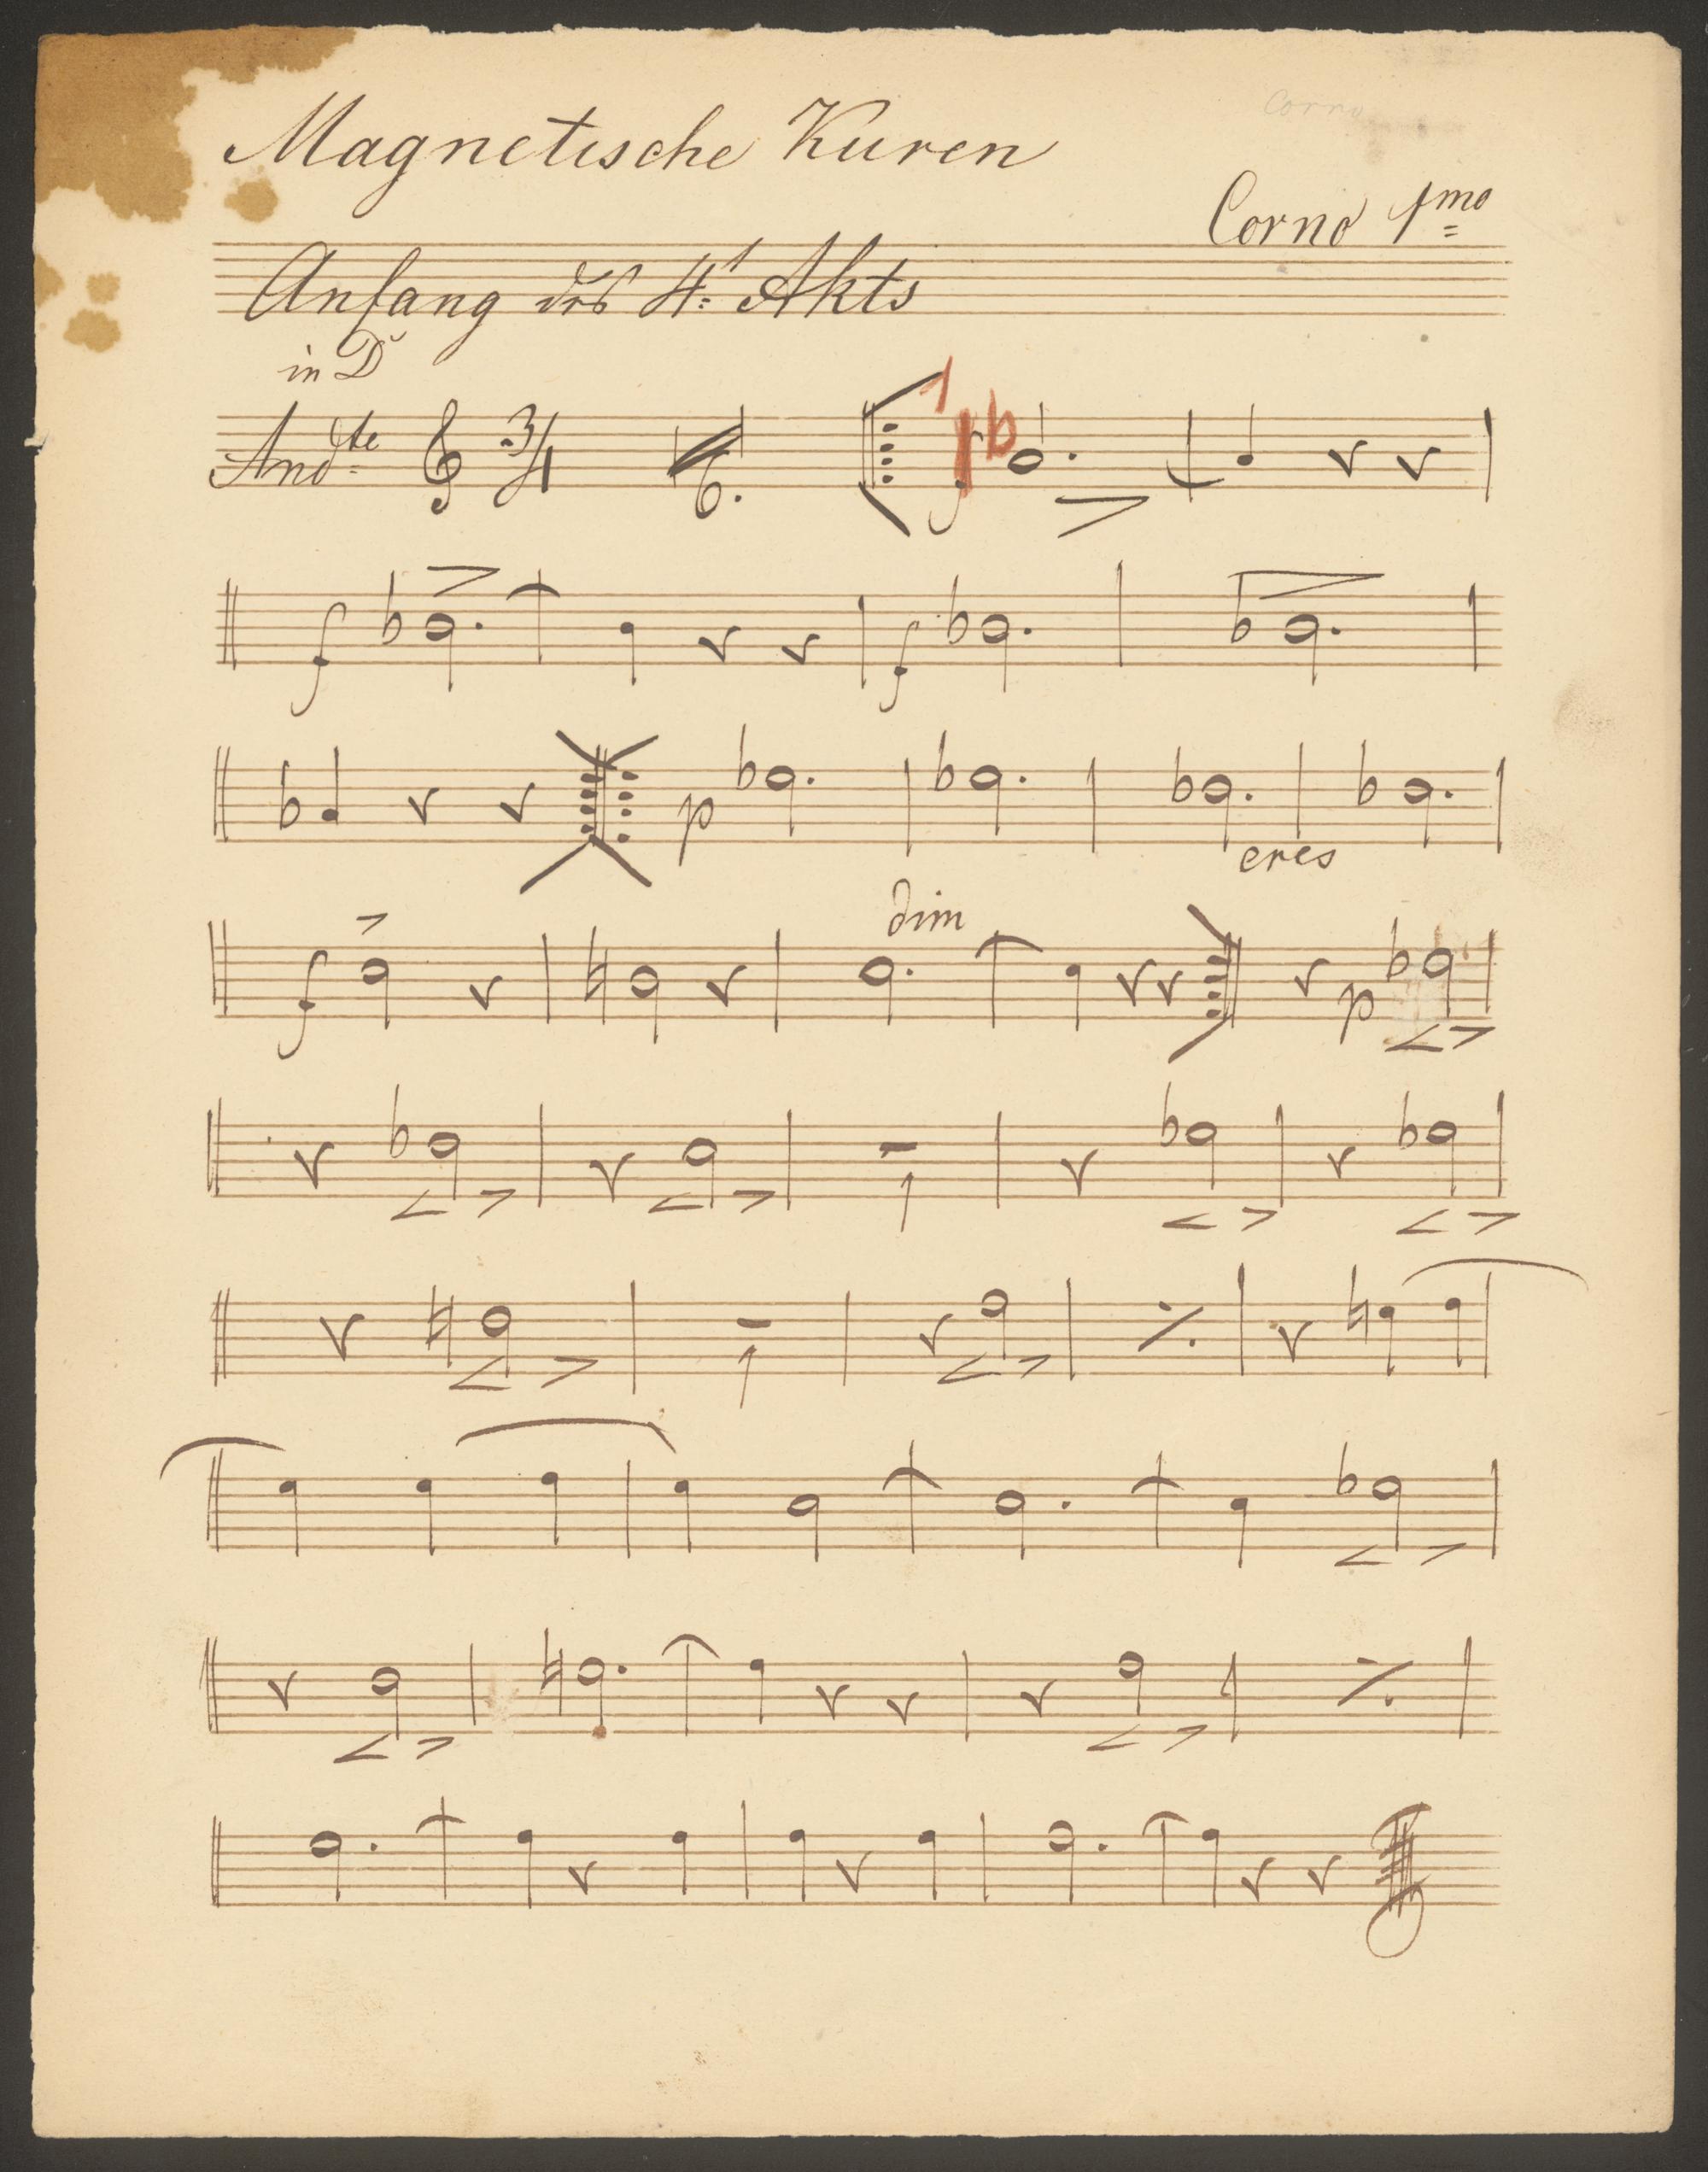 Corno
Magnetische Kuren
Corno 1mo
Anfang des 4t Akts
in D
Andte 3/4 6. 1 f
f f
p cres
f dim p
1
1